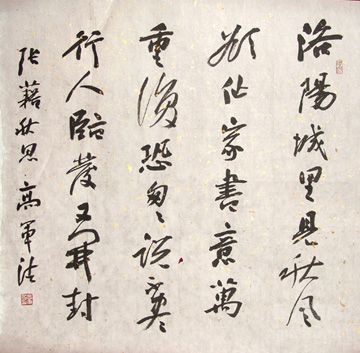 洛陽城里見秋風
欲作家書意萬
重復恐匆々説不盡
行人臨發又開封
張籍秋思 高軍法